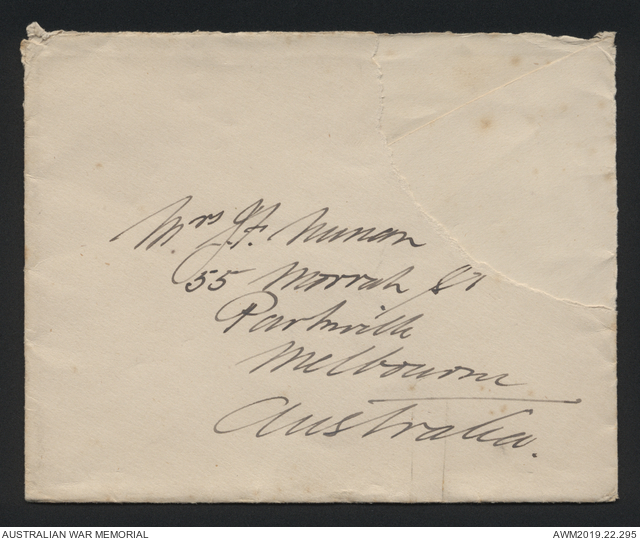 Mrs J.F. Nunan
55 Morrah St
Parkville
Melbourne
Australia.
AUSTRALIAN WAR MEMORIAL
AWM2019.22.295